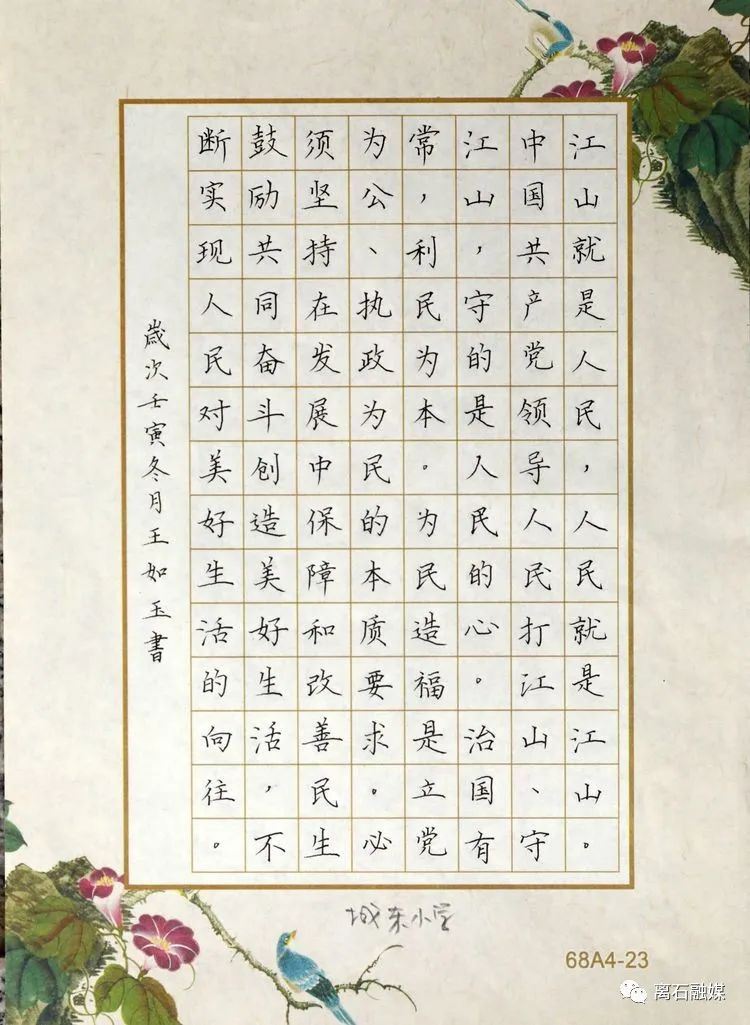 江山就是人民，人民就是江山。
中国共产党领导人民打江山、守
江山，守的是人民的心。治国有
常，利民为本。为民造福是立党
为公、执政为民的本质要求。必
须坚持在发展中保障和改善民生
鼓励共同奋斗创造美好生活，不
断实现人民对美好生活的向往。
歲次壬寅冬月王如玉書
城东小学
68A4-23
离石融媒